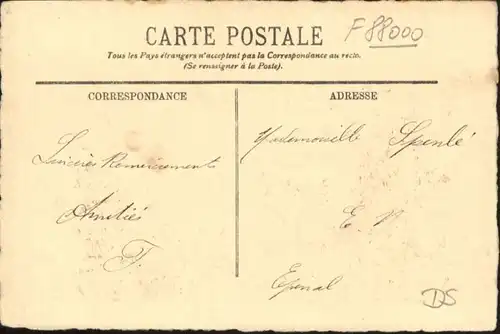 CARTE POSTALE
F 88000
Tous les Pays étrangers n'acceptent pas la Correspondance au recto.
(Se renseigner à la Poste).
CORRESPONDANCE
Sincères Remerciements
Amitiés
F.
ADRESSE
Mademoiselle Spenlé
E. N
Epinal
DS